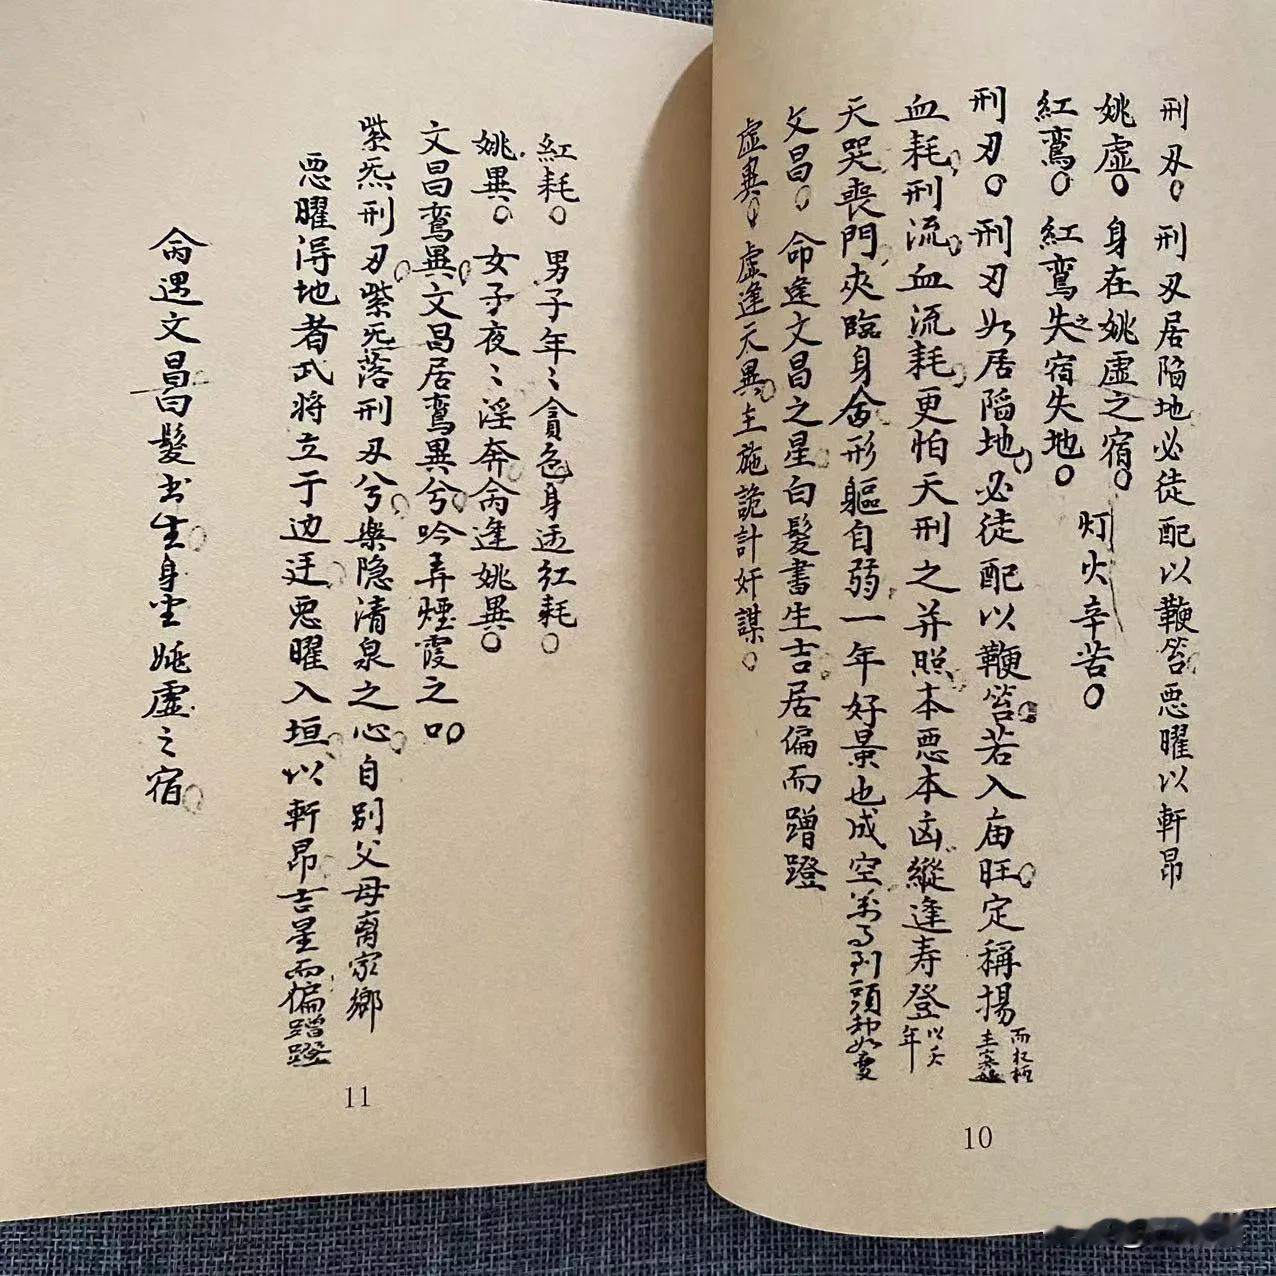 刑刃。刑刃居陷地必徒配以鞭笞悪曜以軒昂
姚虛。身在姚虛之宿。灯火辛苦。
紅鸞。紅鸞失之宿失地。
刑刃。刑刃如居陷地。必徒配以鞭笞。若入庙旺。定稱揚
血耗。刑流。血流耗。更怕天刑之并照。本悪本凶縱逢寿登
以夭年
天哭喪門夾臨身命形軀自弱一年好景也成空
文昌。命逢文昌之星。白髮書生。吉居偏而蹭蹬
虛異。虛逢天異。主施詭計奸謀。
10
紅耗。男子年〻貪色。身逢紅耗。
姚異。女子夜〻淫奔。命逢姚異。
文昌鸞異。文昌居鸞異兮。吟弄煙霞之口。
紫炁刑刃。紫炁落刑刃兮。樂隐清泉之心。自别父母离家鄉
悪曜得地者武将立于边廷。悪曜入垣。以軒昂吉星而偏蹭蹬
命遇文昌白髮书生。身坐姚虛之宿。
11